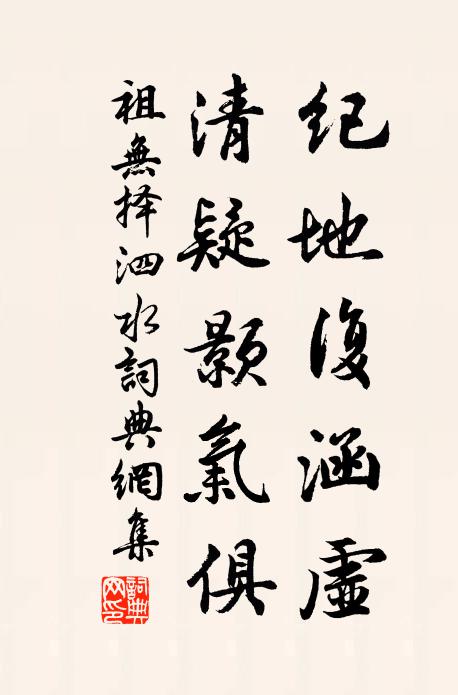 紀地復涵虛
清疑顥氣俱
祖無择泗水詞典網集
詞典网印